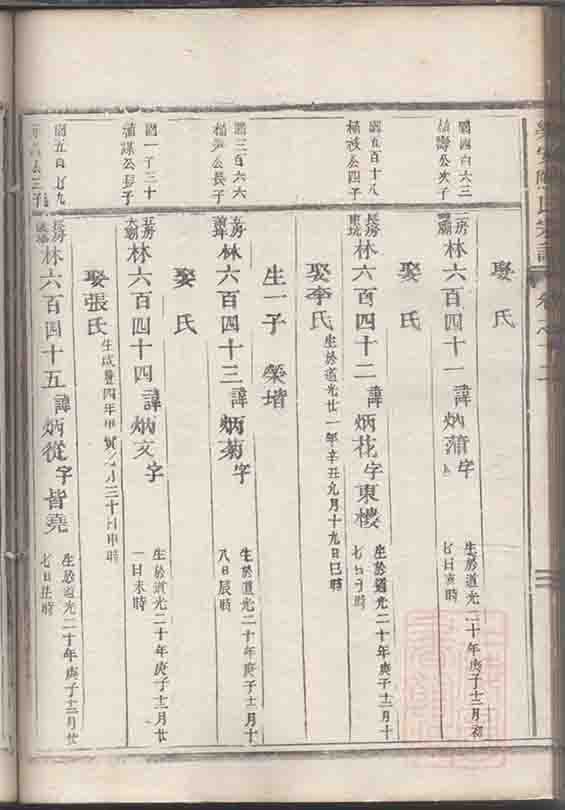 娶氏
國四百六三
公次子
二房
林六百四十一 諱炳蒲 字
生於道光二十年庚子十二月初
七日亥時
娶氏
國五百十八
公四子
長房
林六百四十二 諱炳花 字東樓
生於道光二十年庚子十二月十
七日子時
娶李氏 生於道光廿一年辛丑九月十九日巳時
生一子 榮堦
國三百六六
公長子
五房
林六百四十三 諱炳菊 字
生於道光二十年庚子十二月十
八日辰時
娶氏
國一千三十
公長子
五房
林六百四十四 諱炳文 字
生於道光二十年庚子十二月廿
一日未時
娶張氏 生咸豐四年甲寅 月三十日申時
國五百七九
公三子
長房
林六百四十五 諱炳從 字皆堯
生於道光二十年庚子十二月廿
七日 時